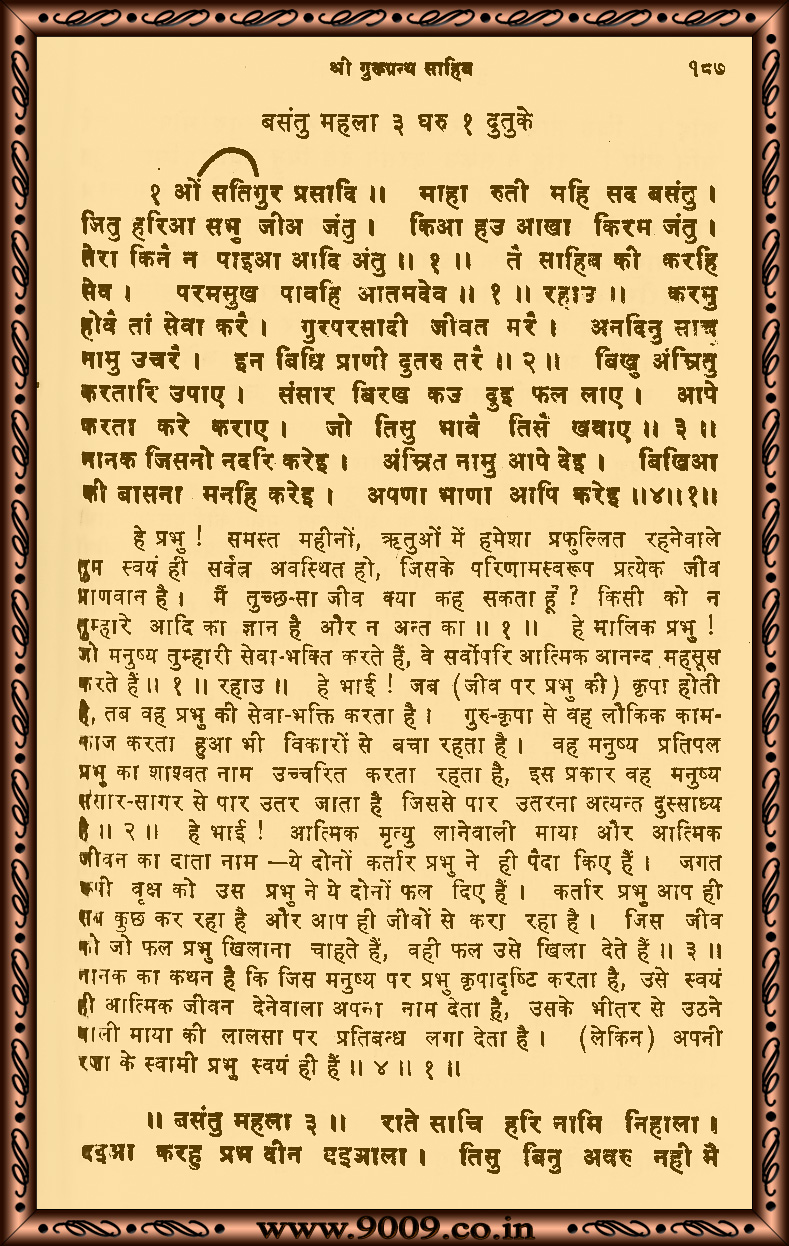 श्री गुरूग्रन्थ साहिब १८७
बसंतु महला ३ घरु १ दुतुके
१ ओं सतिगुर प्रसादि ॥ माहा रुती महि सद बसंतु ।
जितु हरिआ सभु जीअ जंतु । किआ हउ आखा किरम जंतु ।
तेरा किनै न पाइआ आदि अंतु ॥ १ ॥ तै साहिब की करहि
सेव । परमसुख पावहि आतमदेव ॥ १ ॥ रहाउ ॥ करमु
होवै तां सेवा करै । गुरपरसादी जीवत मरै । अनदिनु साचु
नामु उचरै । इन बिधि प्राणी दुतरु तरै ॥ २ ॥ बिखु अंम्रितु
करतारि उपाए । संसार बिरख कउ दुइ फल लाए । आपे
करता करे कराए । जो तिसु भावै तिसै खवाए ॥ ३ ॥
नानक जिसनो नदरि करेइ । अंम्रित नामु आपे देइ । बिखिआ
की बासना मनहि करेइ । अपणा भाणा आपि करेइ ॥४॥१॥
हे प्रभु ! समस्त महीनों, ऋतुओं में हमेशा प्रफुल्लित रहनेवाले
तुम स्वयं ही सर्वत्र अवस्थित हो, जिसके परिणामस्वरूप प्रत्येक जीव
प्राणवान है । मैं तुच्छ-सा जीव क्या कह सकता हूँ ? किसी को न
तुम्हारे आदि का ज्ञान है और न अन्त का ॥ १ ॥ हे मालिक प्रभु !
जो मनुष्य तुम्हारी सेवा-भक्ति करते हैं, वे सर्वोपरि आत्मिक आनन्द महसूस
करते हैं ॥ १ ॥ रहाउ ॥ हे भाई ! जब (जीव पर प्रभु की) कृपा होती
है, तब वह प्रभु की सेवा-भक्ति करता है । गुरु-कृपा से वह लौकिक काम-
काज करता हुआ भी विकारों से बचा रहता है । वह मनुष्य प्रतिपल
प्रभु का शाश्वत नाम उच्चरित करता रहता है, इस प्रकार वह मनुष्य
संसार-सागर से पार उतर जाता है जिससे पार उतरना अत्यन्त दुस्साध्य
है ॥ २ ॥ हे भाई ! आत्मिक मृत्यु लानेवाली माया और आत्मिक
जीवन का दाता नाम —ये दोनों कर्तार प्रभु ने ही पैदा किए हैं । जगत
रूपी वृक्ष को उस प्रभु ने ये दोनों फल दिए हैं । कर्तार प्रभु आप ही
सब कुछ कर रहा है और आप ही जीवों से करा रहा है । जिस जीव
को जो फल प्रभु खिलाना चाहते हैं, वही फल उसे खिला देते हैं ॥ ३ ॥
नानक का कथन है कि जिस मनुष्य पर प्रभु कृपादृष्टि करता है, उसे स्वयं
ही आत्मिक जीवन देनेवाला अपना नाम देता है, उसके भीतर से उठने
वाली माया की लालसा पर प्रतिबन्ध लगा देता है । (लेकिन) अपनी
रज़ा के स्वामी प्रभु स्वयं ही हैं ॥ ४ ॥ १ ॥
॥ बसंतु महला ३ ॥ राते साचि हरि नामि निहाला ।
दइआ करहु प्रभ दीन दइआला । तिसु बिनु अवरु नही मै
www.9009.co.in